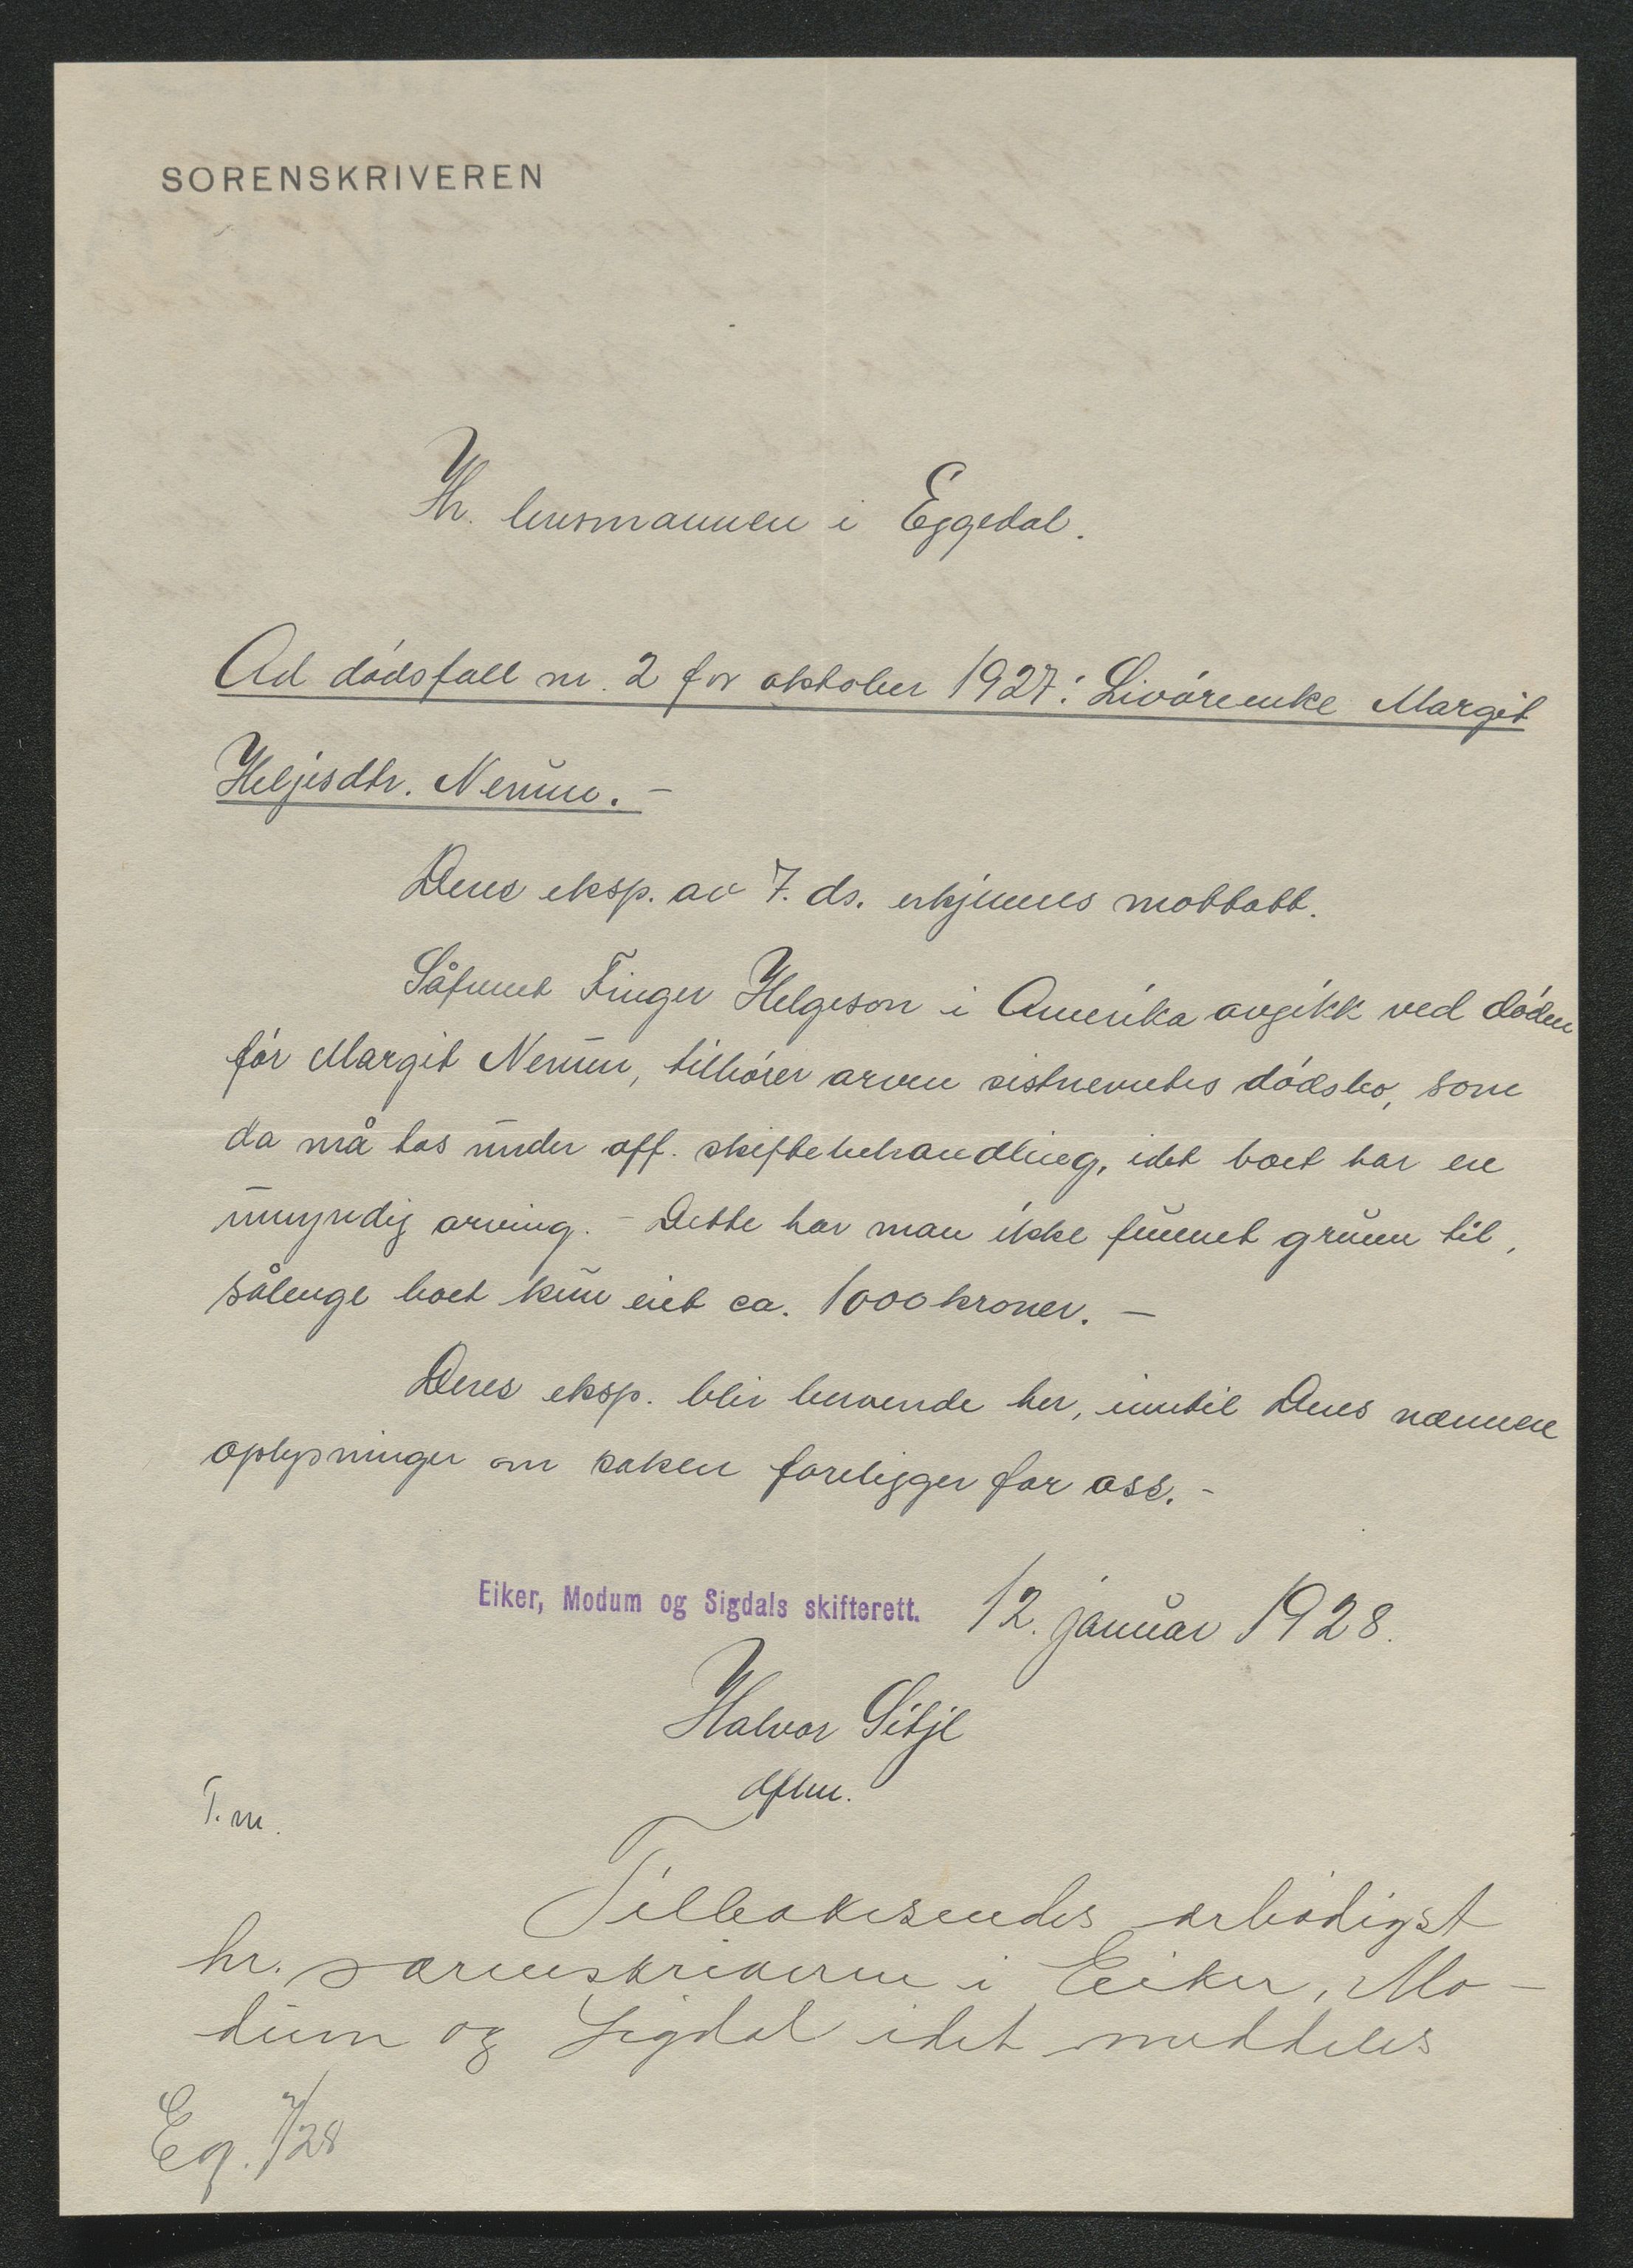 SORENSKRIVEREN
Hr. lensmannen i Eggedal.
Ad dødsfall nr. 2 for oktober 1927: Livøreenke Margit
Heljesdtr. Nerum. -
Deres eksp. av 7. ds. erkjennes mottatt.
Såfremt Finger Helgeson i Amerika avgikk ved døden
før Margit Nerum, tilhører arven sistnevntes dødsbo, som
da må tas under off. skiftebehandling, idet boet har en
umyndig arving. - Dette har man ikke funnet grunn til,
sålenge boet kun eiet ca. 1000 kroner. -
Deres eksp. blir beroende her, inntil Deres nærmere
oplysninger om saken foreligger for oss. -
Eiker, Modum og Sigdals skifterett. 12. januar 1928.
Halvor Sitje
dfhm.
T. m.
Tilbakesendes ærbødigst
hr. sorenskriveren i Eiker, Mo-
dum og Sigdal idet meddeles
Eg. 7/28